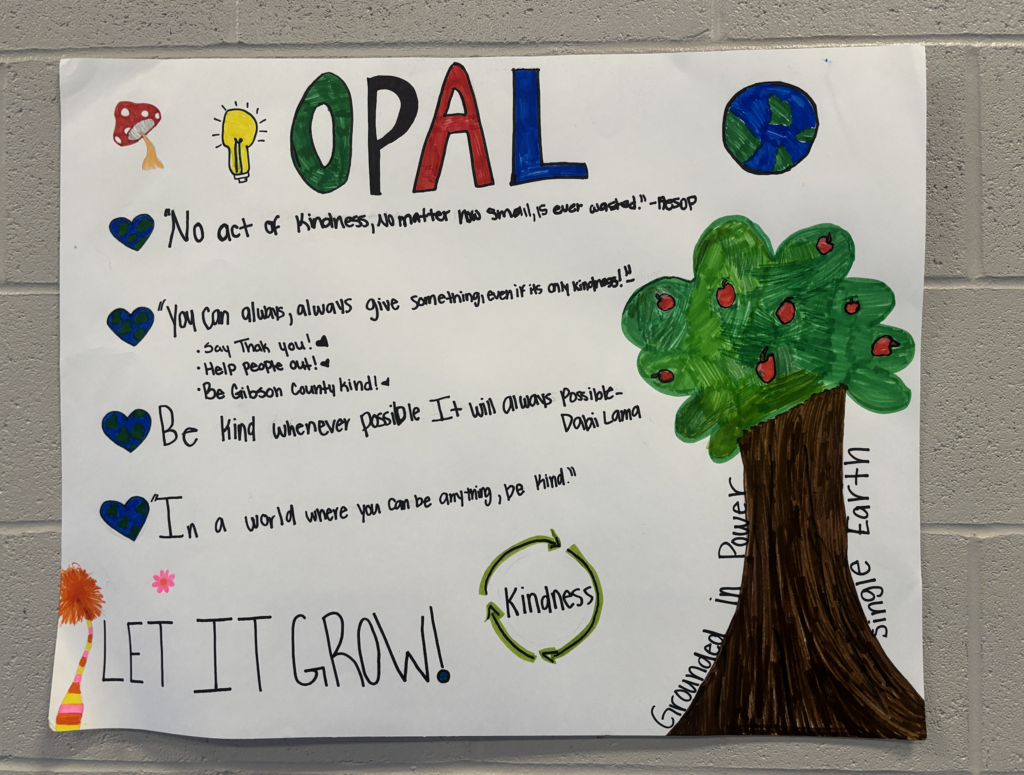 OPAL
"No act of kindness, No matter how small, is ever wasted." -Aesop
"You can always, always give something, even if its only kindness!"
• Say Thak you!
• Help people out!
• Be Gibson County Kind!
Be kind whenever possible It will always Possible-
Dabii Lama
"In a world where you can be anything, be kind."
Kindness
LET IT GROW!
Grounded in Power
Single Earth